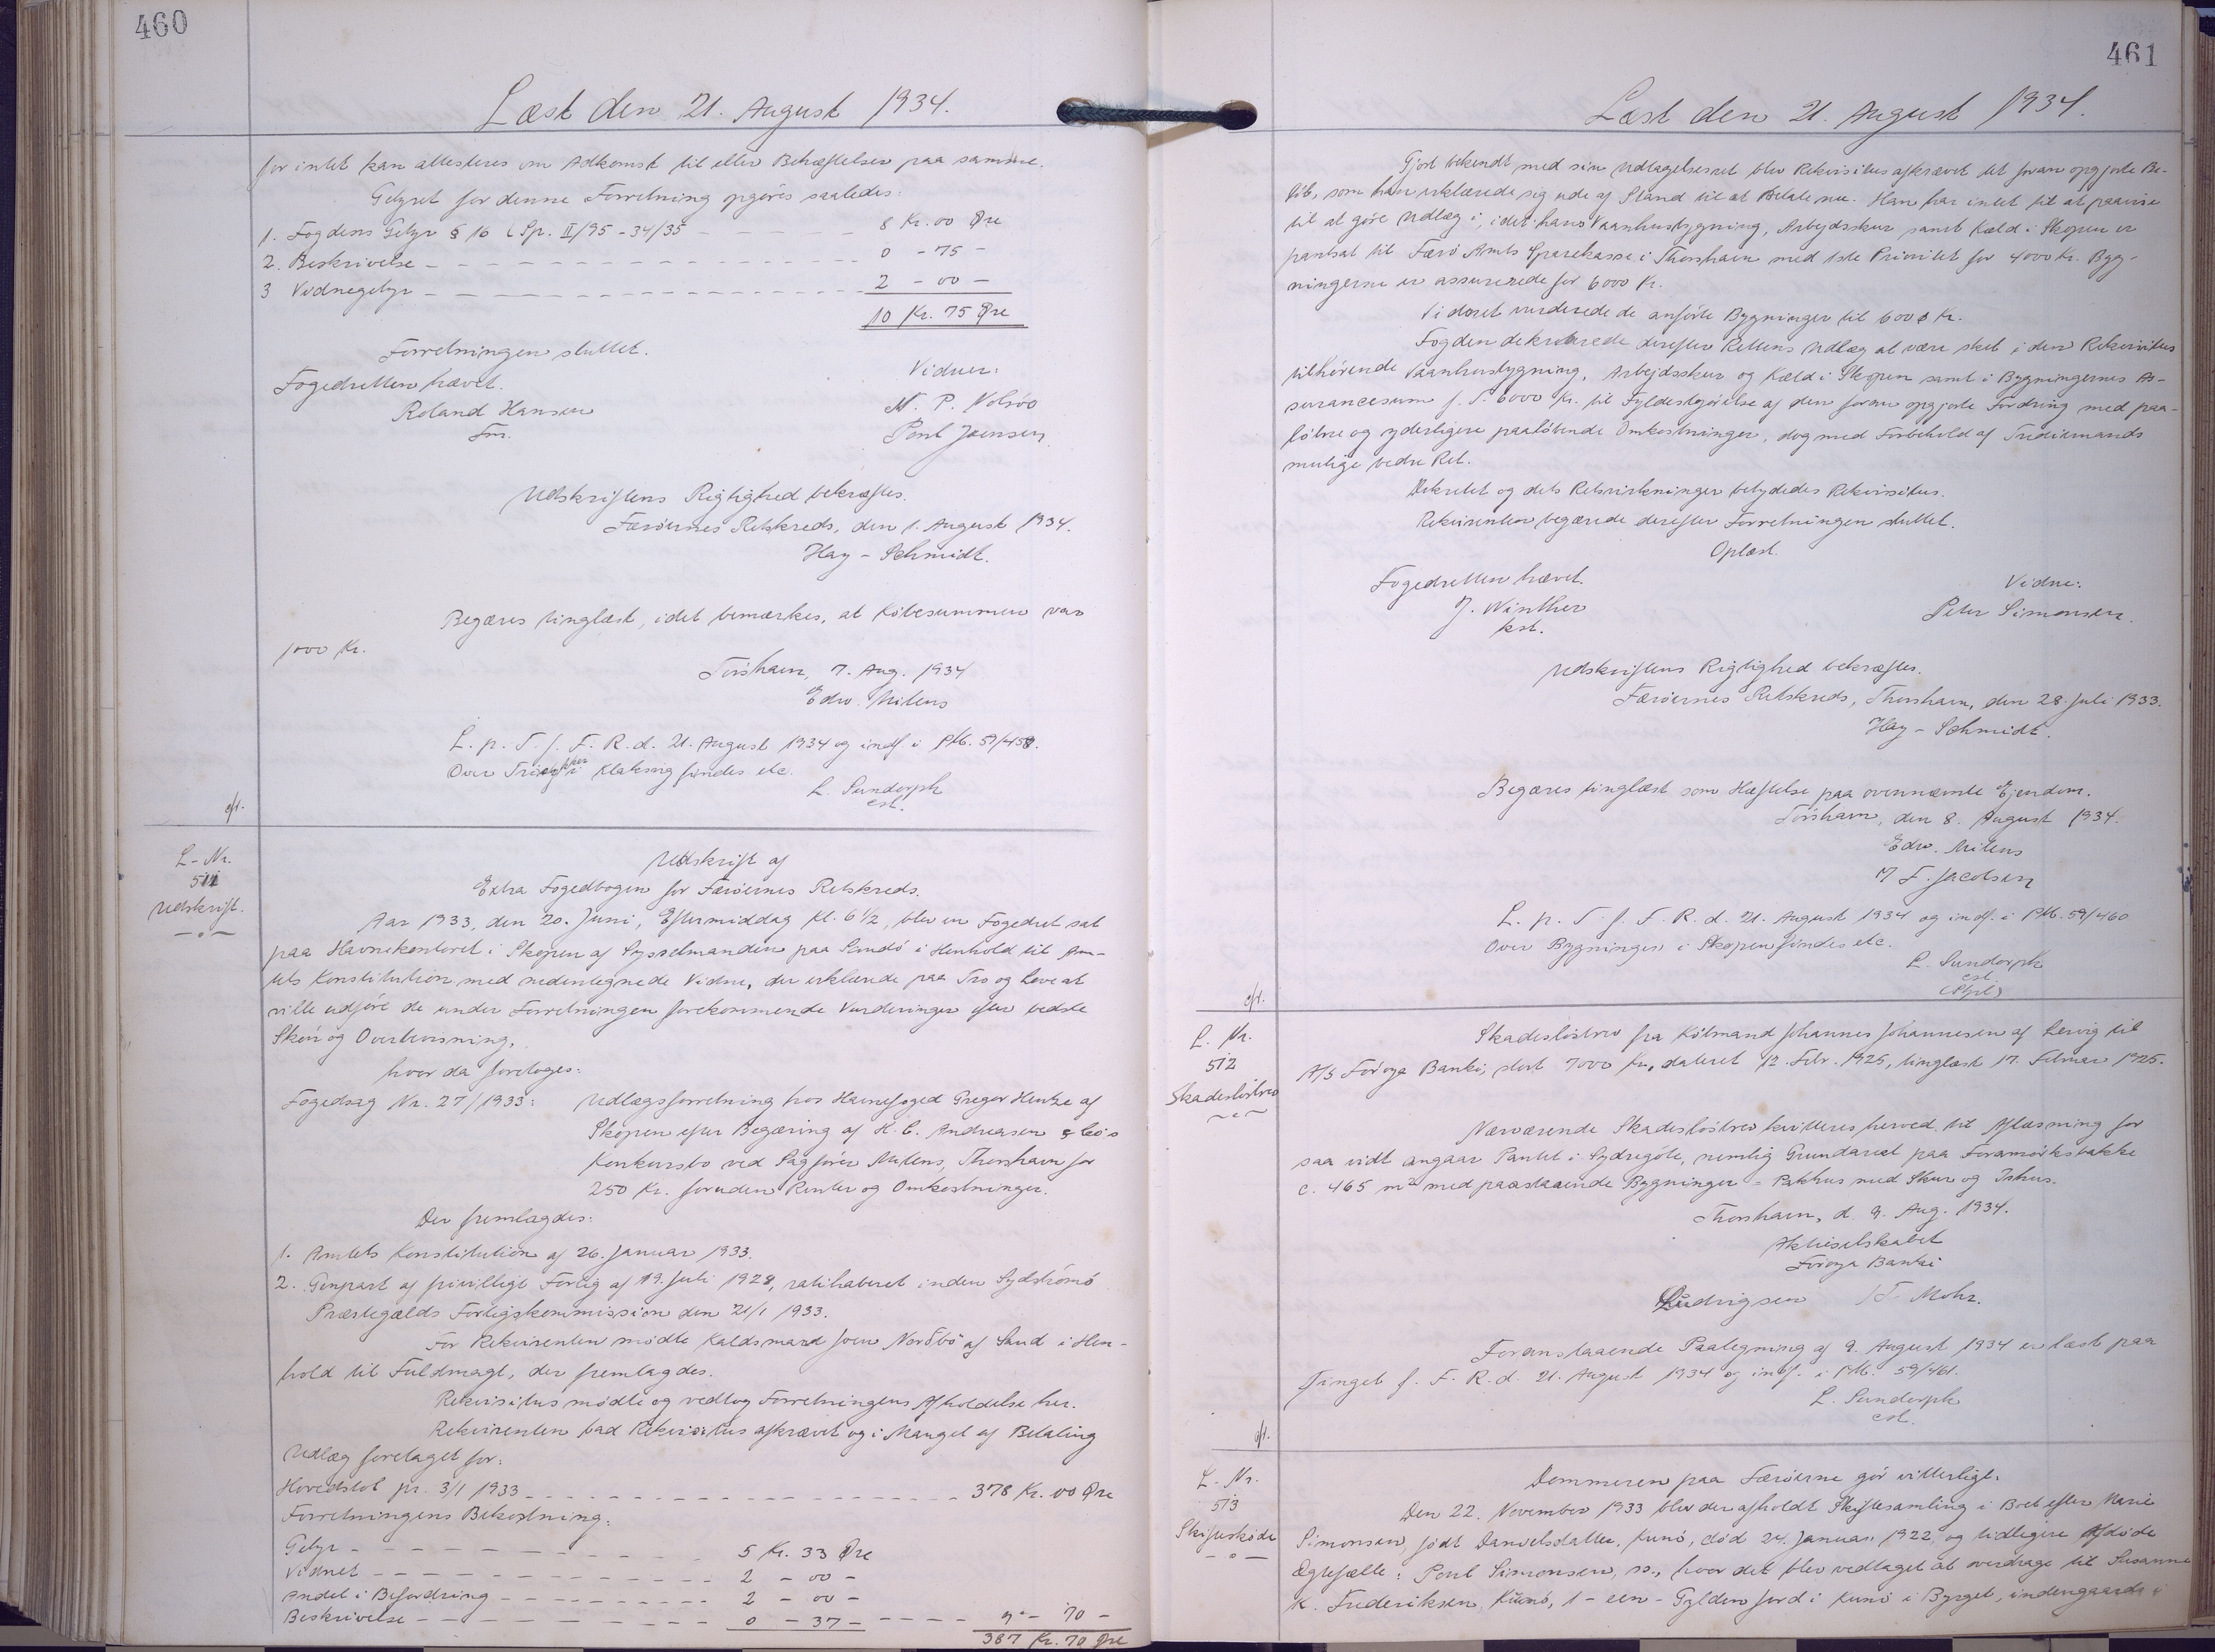 460
Læst den 21. August 1934.
for intet kan attesteres om Adkomst til eller Behæftelser paa samme.
Gebyret for denne Forretning opgøres saaledes:
1. Fogdens Gebyr § 16 (Sp. II/95-34/35 - - - - - 8 Kr. 00 Øre
2. Beskrivelse - - - - - - - - - - 0 - 75 -
3 Vidnegebyr - - - - - - - - - - 2 - 00 -
10 Kr. 75 Øre
Forretningen sluttet.
Fogedretten hævet.
Vidner:
Roland Hansen
N. P. Nolsøe
Fm.
Poul Joensen
Udskriftens Rigtighed bekræftes.
Færøernes Retskreds, den 1. August 1934.
Hay-Schmidt.
Begæres tinglæst, idet bemærkes, at Købesummen var
1000 Kr.
Tórshavn, 7. Aug. 1934
Edw. Mitens
L. p. T. f. F. R. d. 21. August 1934 og indf. i PM. 59/458.
Over i Klaksvig findes etc.
L. Sundorph
cst.
cft.
L-Nr.
511
Udskrift.
Udskrift af
Extra Fogedbogen for Færøernes Retskreds.
Aar 1933, den 20. Juni, Eftermiddag Kl. 6 1/2, blev en Fogedret sat
paa Havnekontoret i Skopen af Sysselmanden paa Sandø i Henhold til Am-
tets Konstitution med nedentegnede Vidne, der erklærede paa Tro og Love at
ville udføre de under Forretningen forekommende Vurderinger efter bedste
Skøn og Overbevisning,
hvor da foretoges:
Fogedsag Nr. 27/1933: Udlægsforretning hos Havnefoged Gregor Hentze af
Skopen efter Begæring af K. C. Andreasen & Co's
Konkursbo ved Sagfører Mitens, Thorshavn for
250 Kr. foruden Renter og Omkostninger.
Der fremlagdes:
1. Amtets Konstitution af 26. Januar 1933.
2. Genpart af frivilligt Forlig af 19. Juli 1928, ratihaberet inden Sydstrømø
Præstegælds Forligskommission den 21/1 1933.
For Rekvirenten mødte Kaldsmand Joen Norðbø af Sand i Hen-
hold til Fuldmagt, der fremlagdes.
Rekvisitus mødte og vedtog Forretningens Afholdelse her.
Rekvirenten bad Rekvisitus afkrævet og i Mangel af Betaling
Udlæg foretaget for:
Hovedstol pr. 3/1 1933 - - - - - - - - - - 378 Kr. 00 Øre
Forretningens Bekostning:
Gebyr - - - - - - - - 5 Kr. 33 Øre
Vidnet - - - - - - - - 2 - 00 -
Andel i Befordring - - - - - - - - 2 - 00 -
Beskrivelse - - - - - - - - 0 - 37 - - - - - 9 - 70 -
387 Kr. 70 Øre
461
Læst den 21. August 1934.
Gjort bekendt med sin Udtagelsesret blev Rekvisitus afkrævet det foran opgjorte Be-
løb, som han erklærede sig ude af Stand til at betale nu. Han har intet til at paavise
til at gøre Udlæg i, idet hans Vaanhusbygning, Arbejdsskur samt Kæld i Skopen er
pantsat til Færø Amts Sparekasse i Thorshavn med 1ste Prioritet for 4000 Kr. Byg-
ningerne er assurerede for 6000 Kr.
Vidnet vurderede de anførte Bygninger til 6000 Kr.
Fogden dekreterede derefter Rettens Udlæg at være sket i den Rekvisitus
tilhørende Vaanhusbygning, Arbejdsskur og Kæld i Skopen samt i Bygningernes As-
surancesum f. T. 6000 Kr. til Fyldestgørelse af den foran opgjorte Fordring med paa-
løbne og yderligere paaløbende Omkostninger, dog med Forbehold af Trediemands
mulige bedre Ret.
Dekretet og dets Retsvirkninger betydedes Rekvisitus.
Rekvirenten begærede derefter Forretningen sluttet.
Oplæst.
Fogedretten hævet.
Vidne:
J. Winther
Peter Simonsen.
kst.
Udskriftens Rigtighed bekræftes.
Færøernes Retskreds, Thorshavn, den 28. Juli 1933.
Hay-Schmidt.
Begæres tinglæst som Hæftelse paa ovennævnte Ejendom.
Tórshavn, den 8. August 1934.
Edw. Mitens
F. Jacobsen
L. p. T. f. F. R. d. 21. August 1934 og indf. i PM. 59/460
Over Bygningen i Skopen findes etc.
L. Sundorph
cst.
cft.
L. Nr.
512
Skadesløsbrev
Skadesløsbrev fra Købmand Johannes Johannesen af Lervig til
A/S Føroya Banki, stort 7000 Kr., dateret 12. Febr. 1925, tinglæst 17. Februar 1925.
Nærværende Skadesløsbrev kvitteres herved til Aflæsning for
saa vidt angaar Pantet i Sydregøte, nemlig Grundareal paa
c. 465 m² med paastaaende Bygninger = Pakhus med Skur og Ishus.
Thorshavn, d. 9. Aug. 1934.
Aktieselskabet
Føroya Banki
Lüdvigsen /F. Mohr.
Foranstaaende Paategning af 9. August 1934 er læst paa
Tinget f. F. R. d. 21. August 1934 og indf. i PM. 59/461.
L. Sundorph
cst.
cft.
L. Nr.
513
Skifteskøde
Dommeren paa Færøerne gør vitterligt:
Den 22. November 1933 blev der afholdt Skiftesamling i Boet efter Marie
Simonsen, født Danielsdatter, Kunø, død 24. Januar 1922, og tidligere afdøde
Ægtefælle: Poul Simonsen, ss., hvor det blev vedtaget at overdrage til Susanne
K. Frederiksen, Kunø, 1 - een - Gylden Jord i Kunø i Bygd, indengaards i